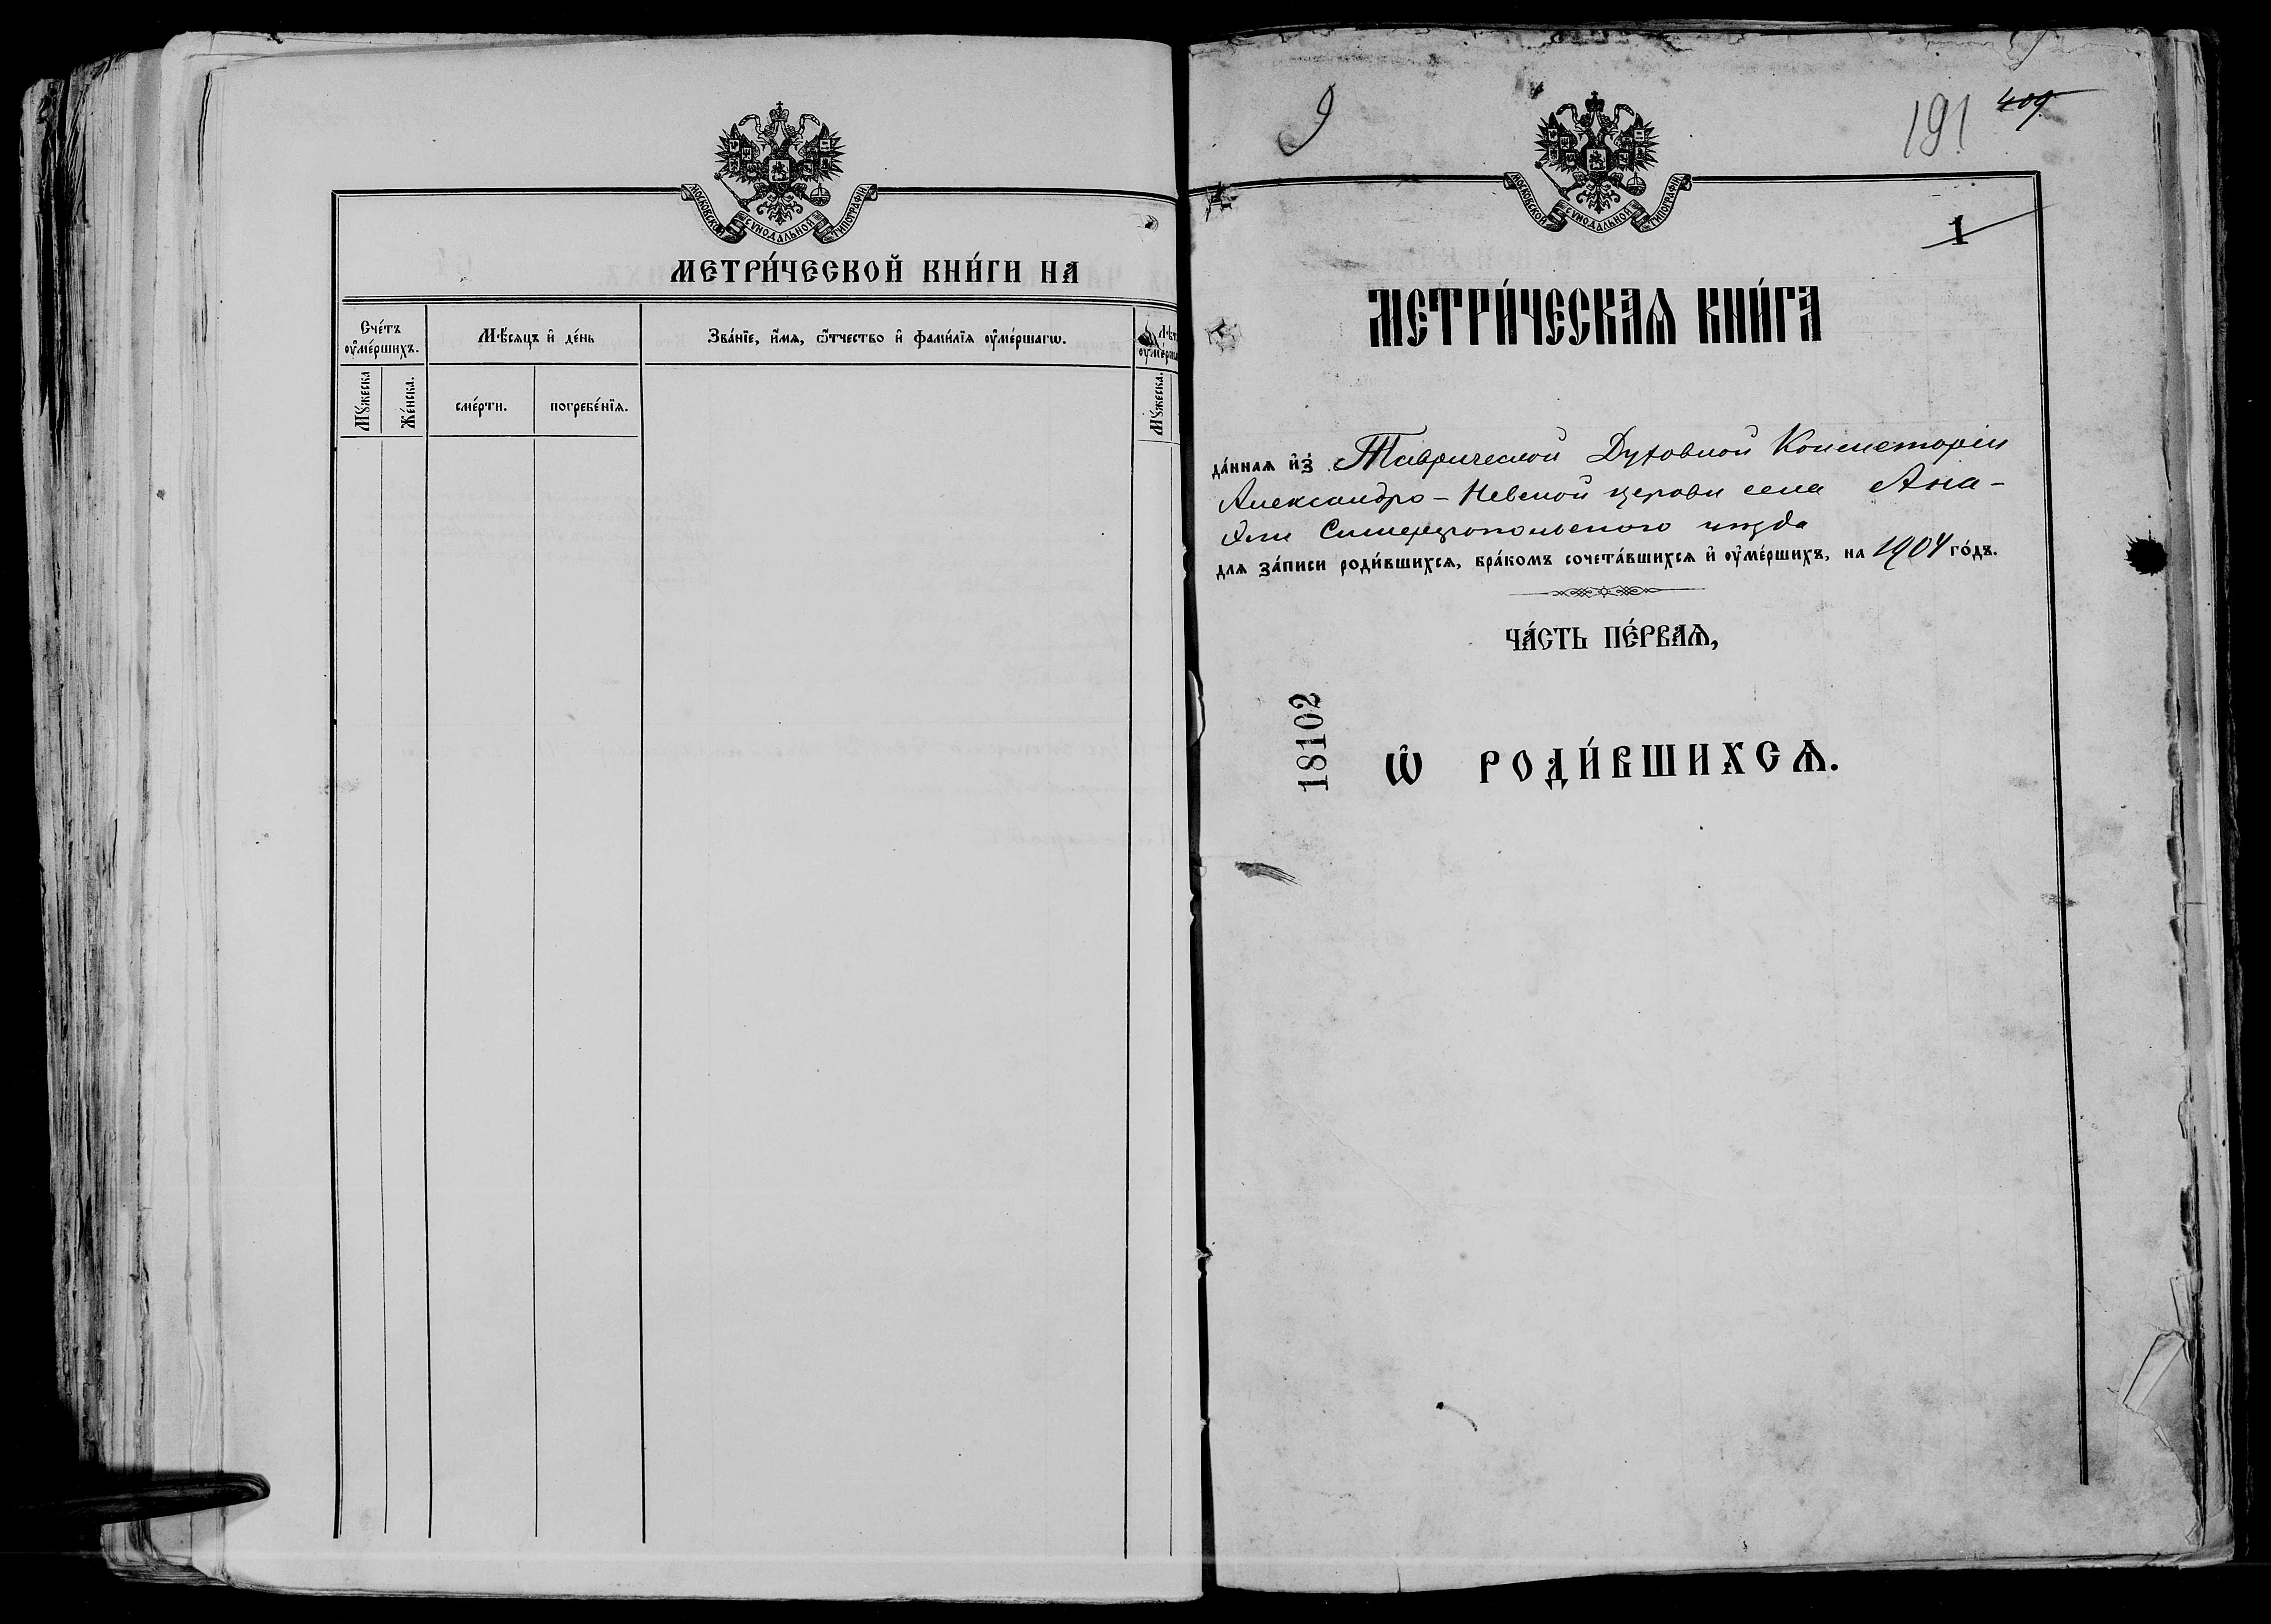 МОСКОВСКОЙ СѴНОДАЛЬНОЙ ТИПОГРАФІИ
МЕТРИ́ЧЕСКОЙ КНИ́ГИ НА
Сче́тъ оу҆ме́ршихъ.
Мѣ́сяцъ и҆ де́нь
Зва́нїе, и҆́мѧ, ѻ҆́тчество и҆ фами́лїѧ оу҆ме́ршагѡ.
Мꙋ́жеска
Же́нска.
сме́рти.
погребе́нїѧ.
Мꙋ́жеска.
9
191
409
МОСКОВСКОЙ СѴНОДАЛЬНОЙ ТИПОГРАФІИ
1
МЕТРИ́ЧЕСКАѦ КНИ́ГА
да́ннаѧ и҆з̾ Таврической Духовной Консисторіи
Александро-Невской церкви села Ана-
Эли Симферопольского уѣзда
для за́писи роди́вшихсѧ, бра́комъ сочета́вшихсѧ и҆ оу҆ме́ршихъ, на 1904 го́дъ.
ЧА́СТЬ ПЕ́РВАѦ,
18102
Ѡ҆ РОДИ́ВШИХСѦ.